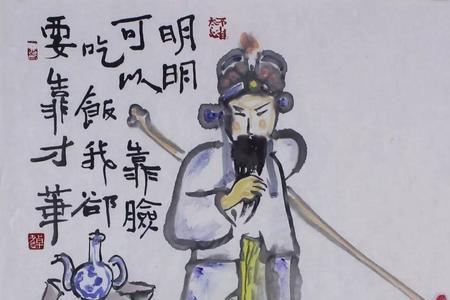 明明
可以靠臉
吃飯我卻
要靠才華